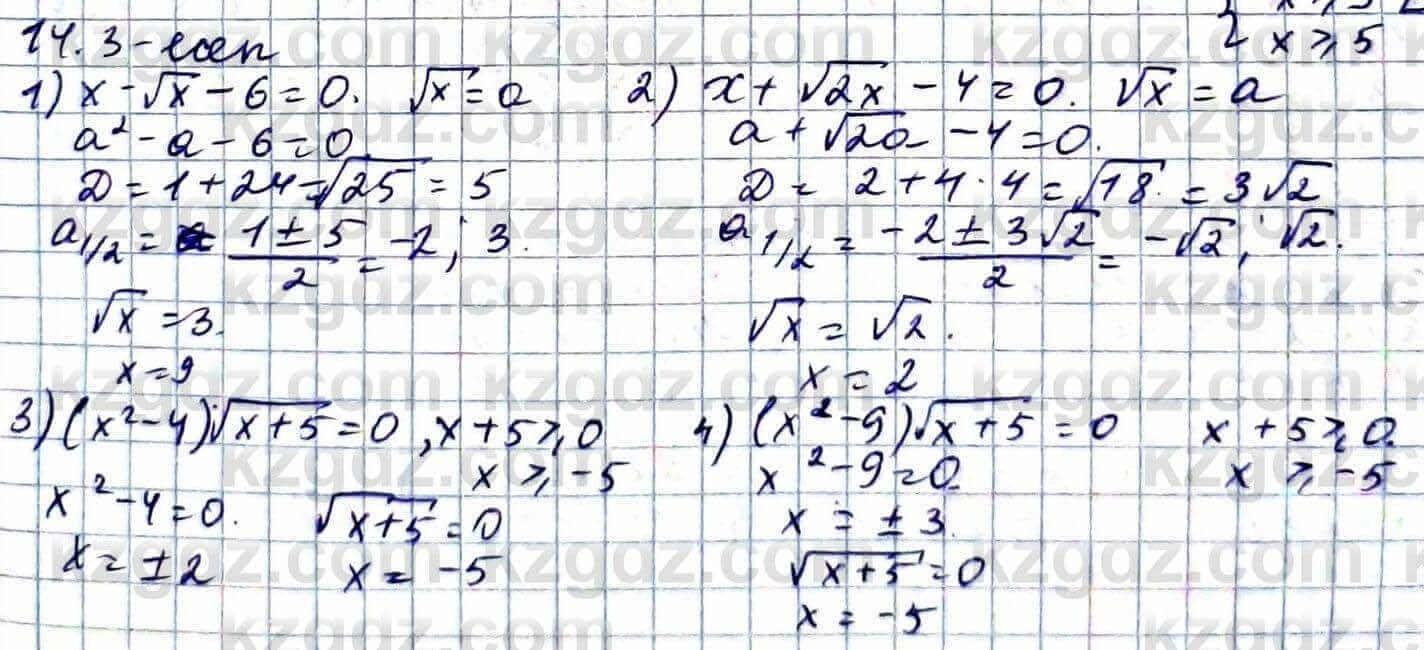 14.3-есеп
x ≥ 5
1) x - √x - 6 = 0. √x = a
a² - a - 6 = 0.
D = 1 + 24 = √25 = 5
a 1/2 = 1 ± 5 / 2 = -2; 3.
√x = 3.
x = 9
2) x + √2x - 4 = 0. √x = a
a + √2a - 4 = 0.
D = 2 + 4 · 4 = √18 = 3√2
a 1/2 = -2 ± 3√2 / 2 = -√2; √2.
√x = √2.
x = 2
3) (x² - 4)√x + 5 = 0, x + 5 ≥ 0
x ≥ -5
x² - 4 = 0. √x + 5 = 0
x = ±2 x = -5
4) (x² - 9)√x + 5 = 0 x + 5 ≥ 0.
x² - 9 = 0. x ≥ -5
x = ±3.
√x + 5 = 0
x = -5
kzgdz.com